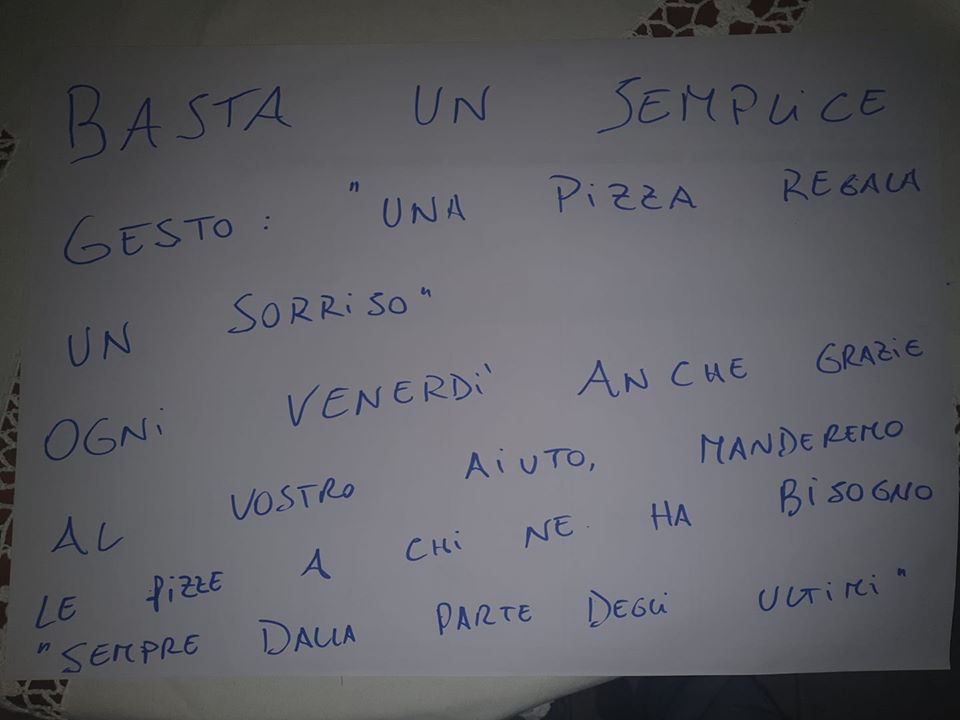 BASTA UN SEMPLICE
GESTO: "UNA PIZZA REGALA
UN SORRISO"
OGNI VENERDI' ANCHE GRAZIE
AL VOSTRO AIUTO, MANDEREMO
LE PIZZE A CHI NE HA BISOGNO
"SEMPRE DALLA PARTE DEGLI ULTIMI"